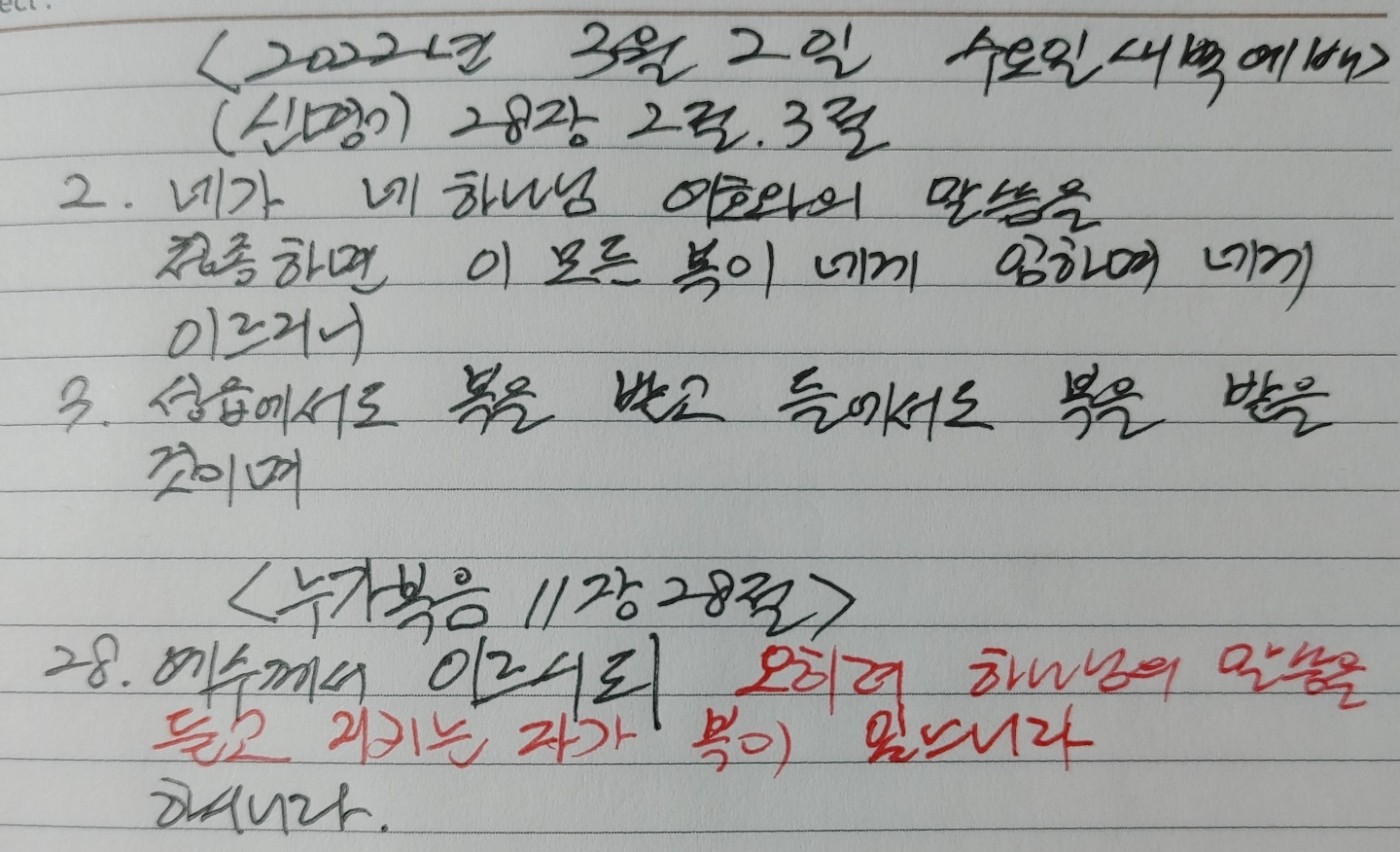 <2022년 3월 2일 수요일 새벽예배>
(신명기) 28장 2절. 3절
2. 네가 네 하나님 여호와의 말씀을
청종하면 이 모든 복이 네게 임하며 네게
이르리니
3. 성읍에서도 복을 받고 들에서도 복을 받을
것이며
<누가복음 11장 28절>
28. 예수께서 이르시되 오히려 하나님의 말씀을
듣고 지키는 자가 복이 있느니라
하시니라.